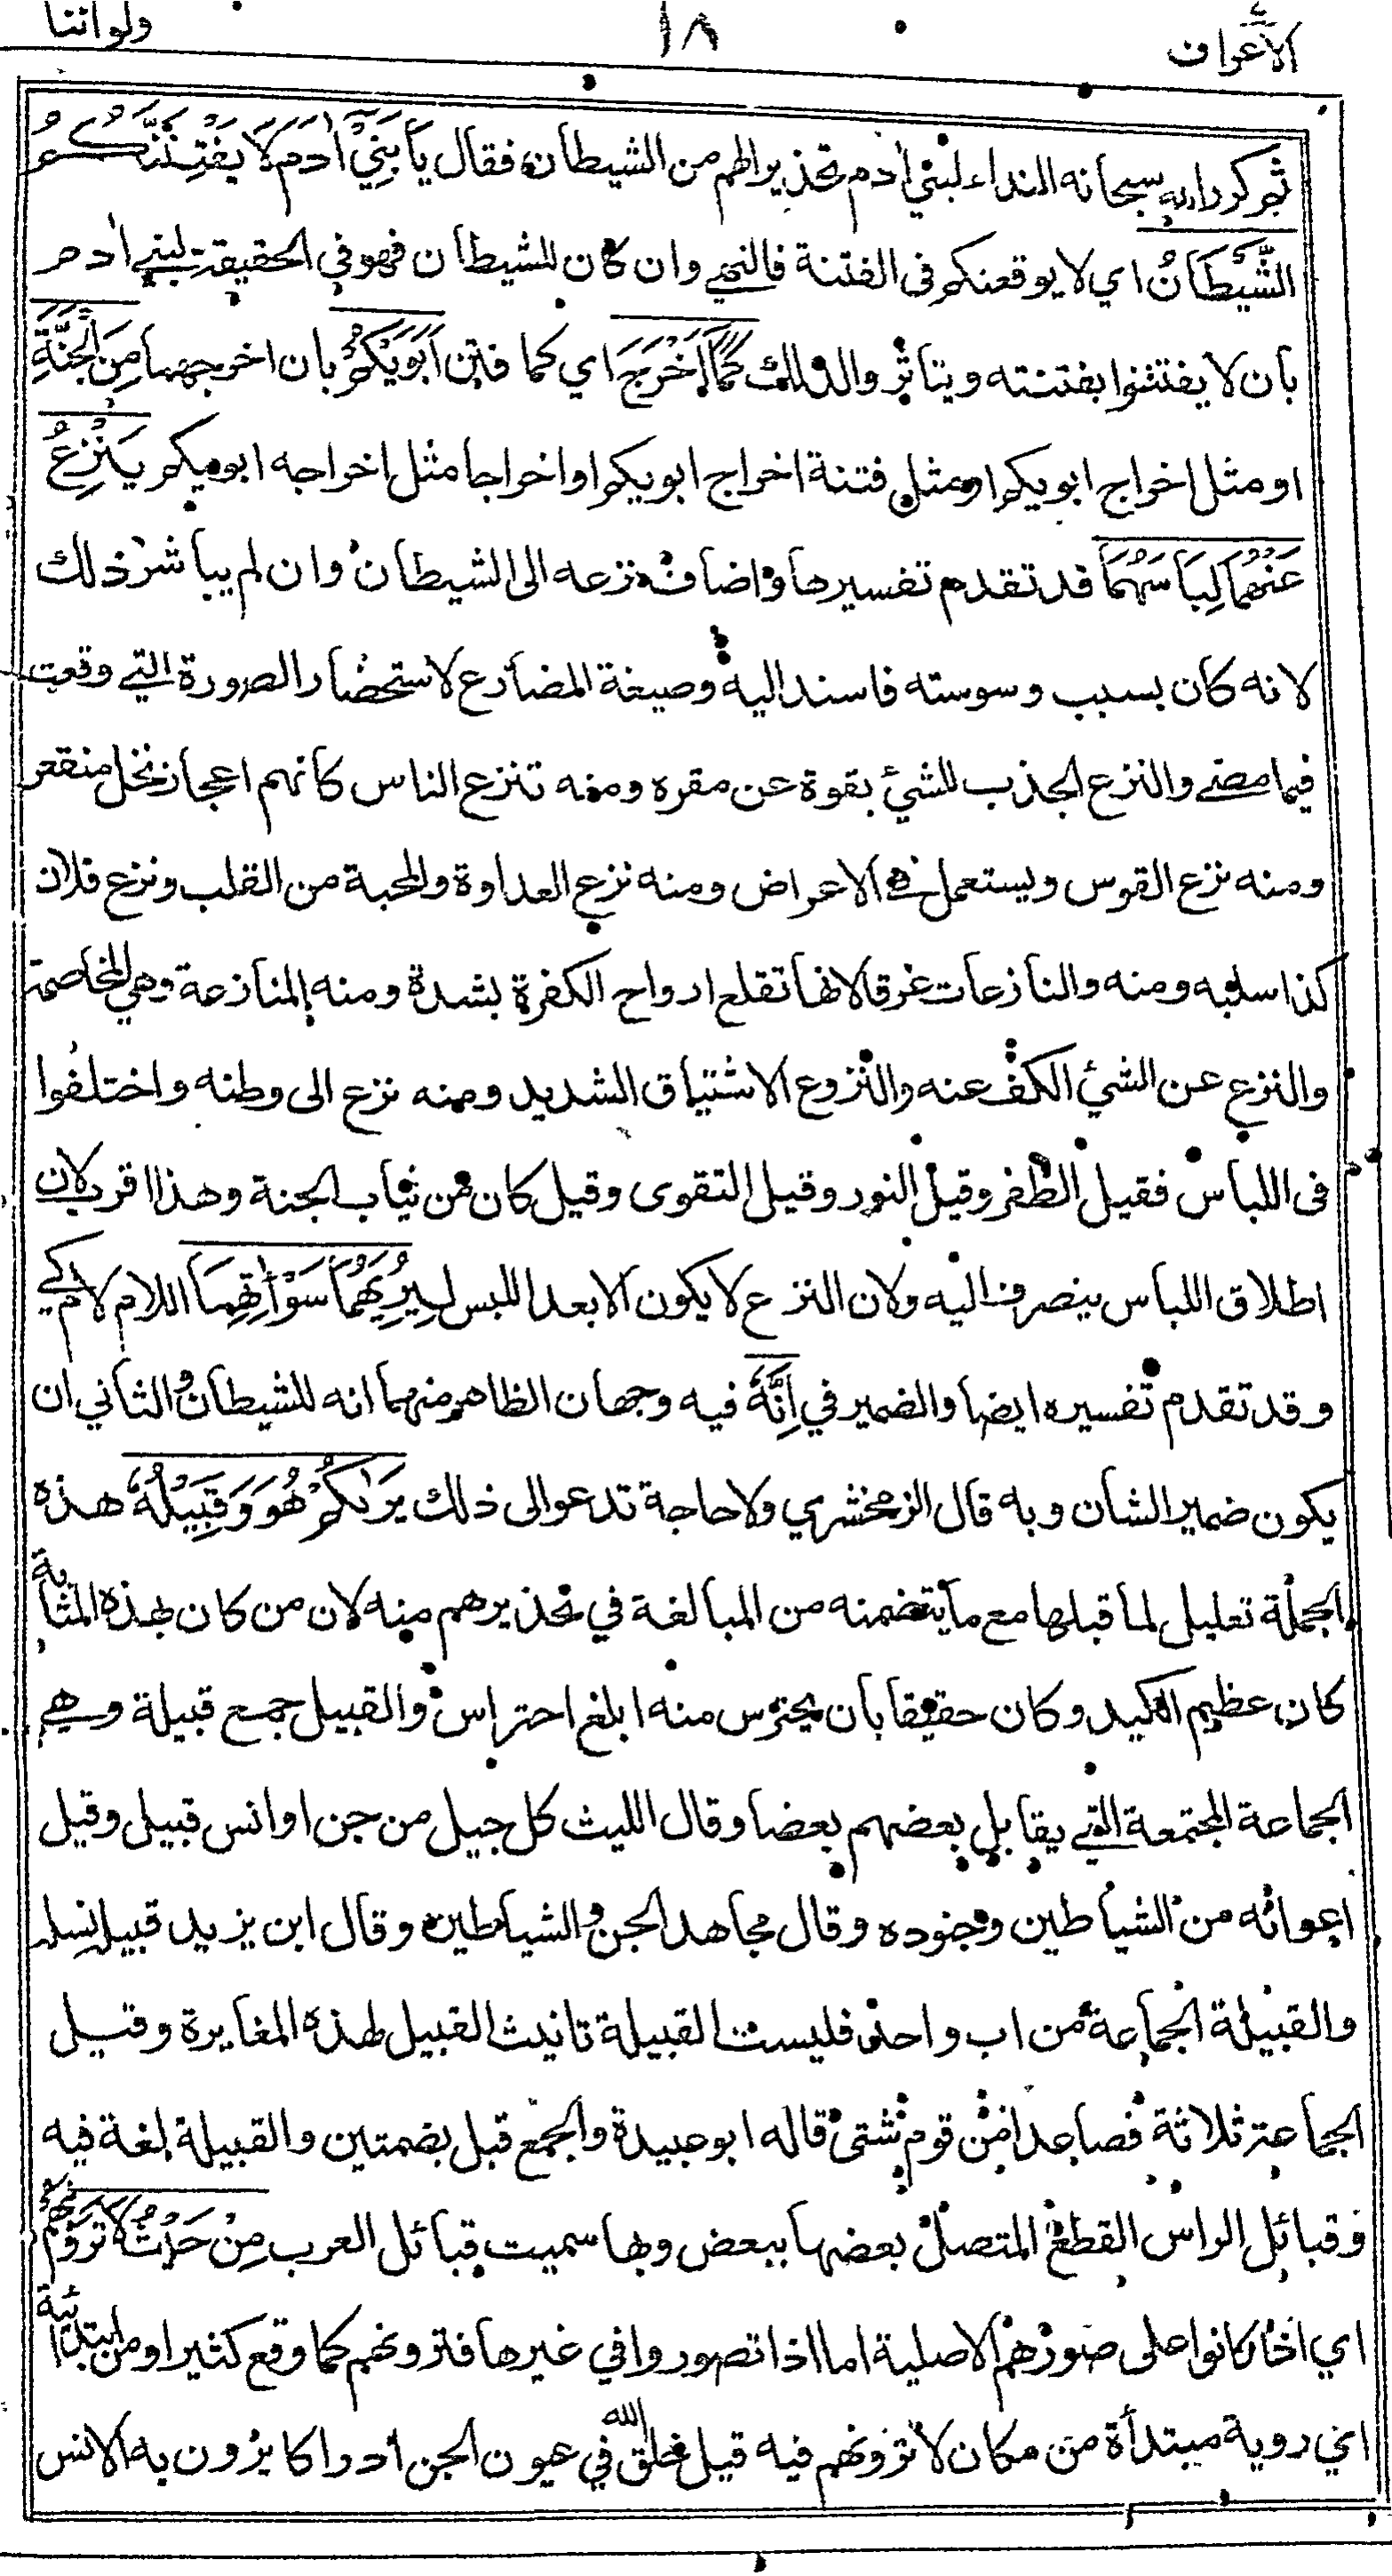 الاعراف
١٨
ولو اننا
ثم كرر الله سبحانه النداء لبني اٰدم تحذيرا لهم من الشيطان فقال يَا بَنِيْ اٰدَمَ لَا يَفْتِنَنَّكُمُ
الشَّيْطَانُ اي لا يوقعنكم فى الفتنة فالنهي وان كان للشيطان فهو في الحقيقة لبني اٰدم
بأن لا يفتتنوا بفتنته ويتأثروا لذلك كَمَا اَخْرَجَ اي كما فتن اَبَوَيْكُمْ بان اخرجهما مِنَ الْجَنَّةِ
او مثل اخراج ابويكم او مثل فتنة اخراج ابويكم او اخراجا مثل اخراجه ابويكم يَنْزِعُ
عَنْهُمَا لِبَاسَهُمَا قد تقدم تفسيرها واضافة نزعه الى الشيطان وان لم يباشر ذلك
لانه كان بسبب وسوسته فاسند اليه وصيغة المضارع لاستحضار الصورة التي وقعت
فيما مضى والنزع الجذب للشئ بقوة عن مقره ومنه تنزع الناس كانهم اعجاز نخل منقعر
ومنه نزع القوس ويستعمل في الاعراض ومنه نزع العداوة والمحبة من القلب ونزع فلان
كذا سلبه ومنه والنازعات غرقا لانها تقلع ارواح الكفرة بشدة ومنه المنازعة وهي المخاصمة
والنزع عن الشئ الكف عنه والنزوع الاشتياق الشديد ومنه نزع الى وطنه واختلفوا
فى اللباس فقيل الظفر وقيل النور وقيل التقوى وقيل كان من ثياب الجنة وهذا اقرب لان
اطلاق اللباس ينصرف اليه ولان النزع لا يكون الا بعد اللبس لِيُرِيَهُمَا سَوْاٰتِهِمَا اللام لام كي
وقد تقدم تفسيره ايضا والضمير في اِنَّهٗ فيه وجهان الظاهر منهما انه للشيطان والثاني ان
يكون ضمير الشأن وبه قال الزمخشري ولا حاجة تدعو الى ذلك يَرٰىكُمْ هُوَ وَقَبِيْلُهٗ هذه
الجملة تعليل لما قبلها مع ما يتضمنه من المبالغة في تحذيرهم منه لان من كان بهذه المثابة
كان عظيم الكيد وكان حقيقا بأن يحترس منه ابلغ احتراس والقبيل جمع قبيلة وهي
الجماعة المجتمعة التي يقابل بعضهم بعضا وقال الليث كل جيل من جن او انس قبيل وقيل
اعوانه من الشياطين وجنوده وقال مجاهد الجن والشياطين وقال ابن يزيد قبيله نسله
والقبيلة الجماعة من اب واحد فليست القبيلة تانيث القبيل لهذه المغايرة وقيل
الجماعة ثلاثة فصاعدا من قوم شتى قاله ابو عبيدة والجمع قبل بضمتين والقبيلة لغة فيه
وقبائل الراس القطع المتصل بعضها ببعض وبها سميت قبائل العرب مِنْ حَيْثُ لَا تَرَوْنَهُمْ
اي اذا كانوا على صورهم الاصلية اما اذا تصوروا في غيرها فترونهم كما وقع كثيرا ومن ابتدائية
اي روية مبتدأة من مكان لا ترونهم فيه قيل خلق الله في عيون الجن ادراكا يرون به الانس